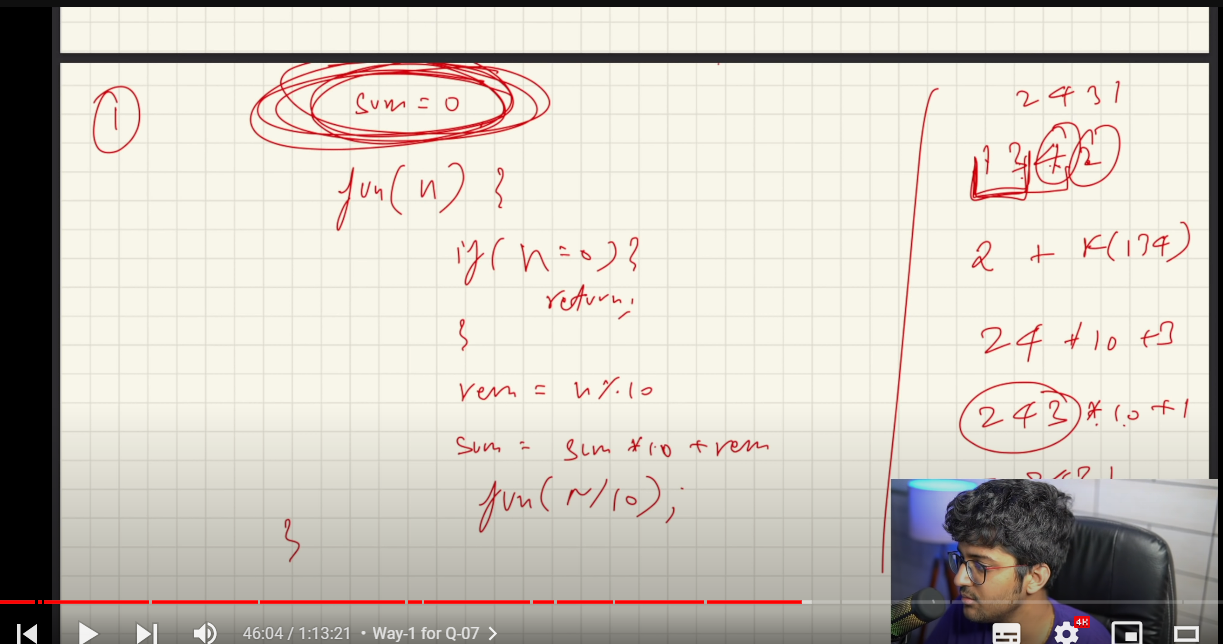 1
sum = 0
fun(n) {
if(n=0){
return;
}
rem = n%10
sum = sum*10 + rem
fun(n/10);
}
2431
1342
2 + F(134)
24*10+3
243*10+1
46:04 / 1:13:21 • Way-1 for Q-07
4K